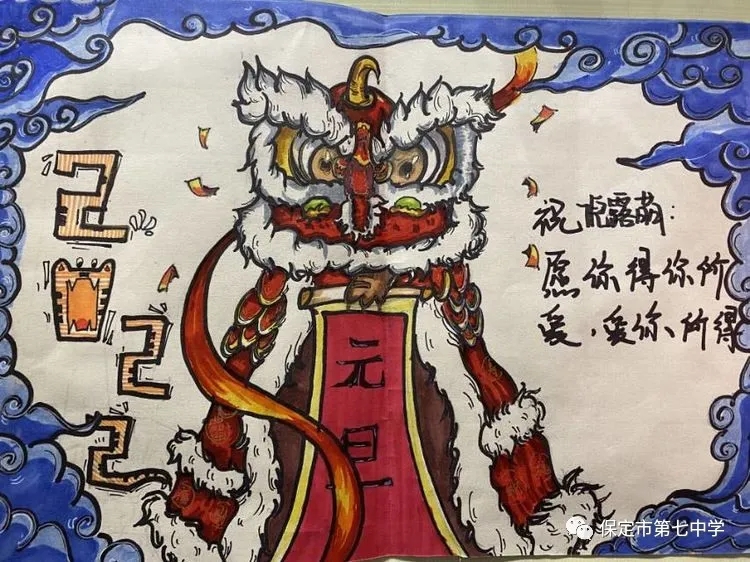 2022
元旦
祝 露萌:
愿你得你所
爱,爱你所得
保定市第七中学